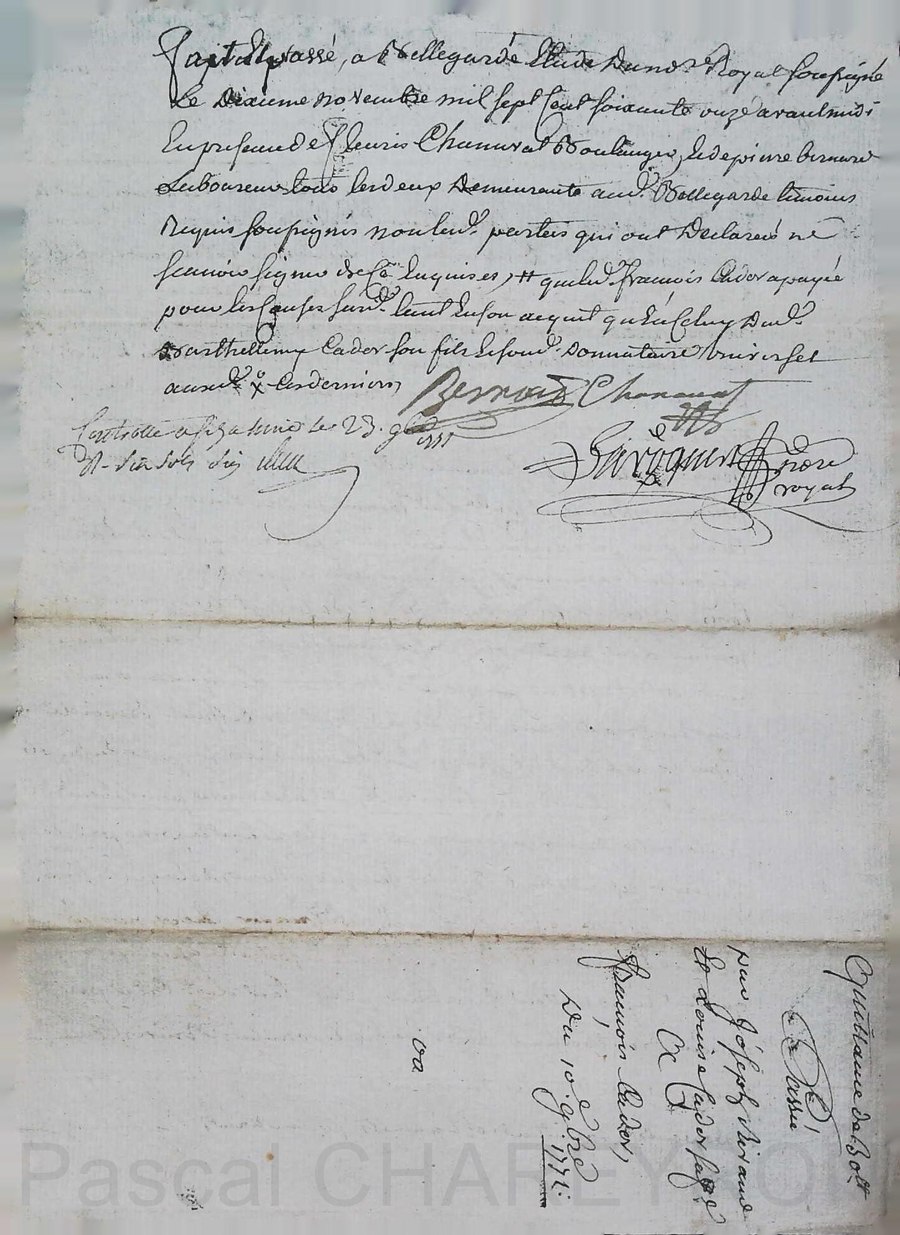 Fait Et passé, a Bellegarde Etude du no.re Royal soussigné
Le dixieme novembre mil sept Cent soixante onze avant midi
En presence de fleuris Chanavat Boulanger, Et de pierre bernard
Laboureur tous les deux demeurants aud. Bellegarde temoins
Requis soussignés non led. parties qui ont Declarées ne
scavoir signer de ce Enquises, # que led. françois Cador a payée
pour les Causes susd. tant En son acquit qu'en Celuy dud.
Barthellemy Cador son fils Et sond. donnataire universel
Ces derniers,
Bernard Chanavat
Controllé a le 23. 9bre 1771
R. six sols six
royal
Quittance de Dott
Passée
par Joseph
Et Louise Cador sa
A
françois Cador,
Du 10.e 9bre 1771.